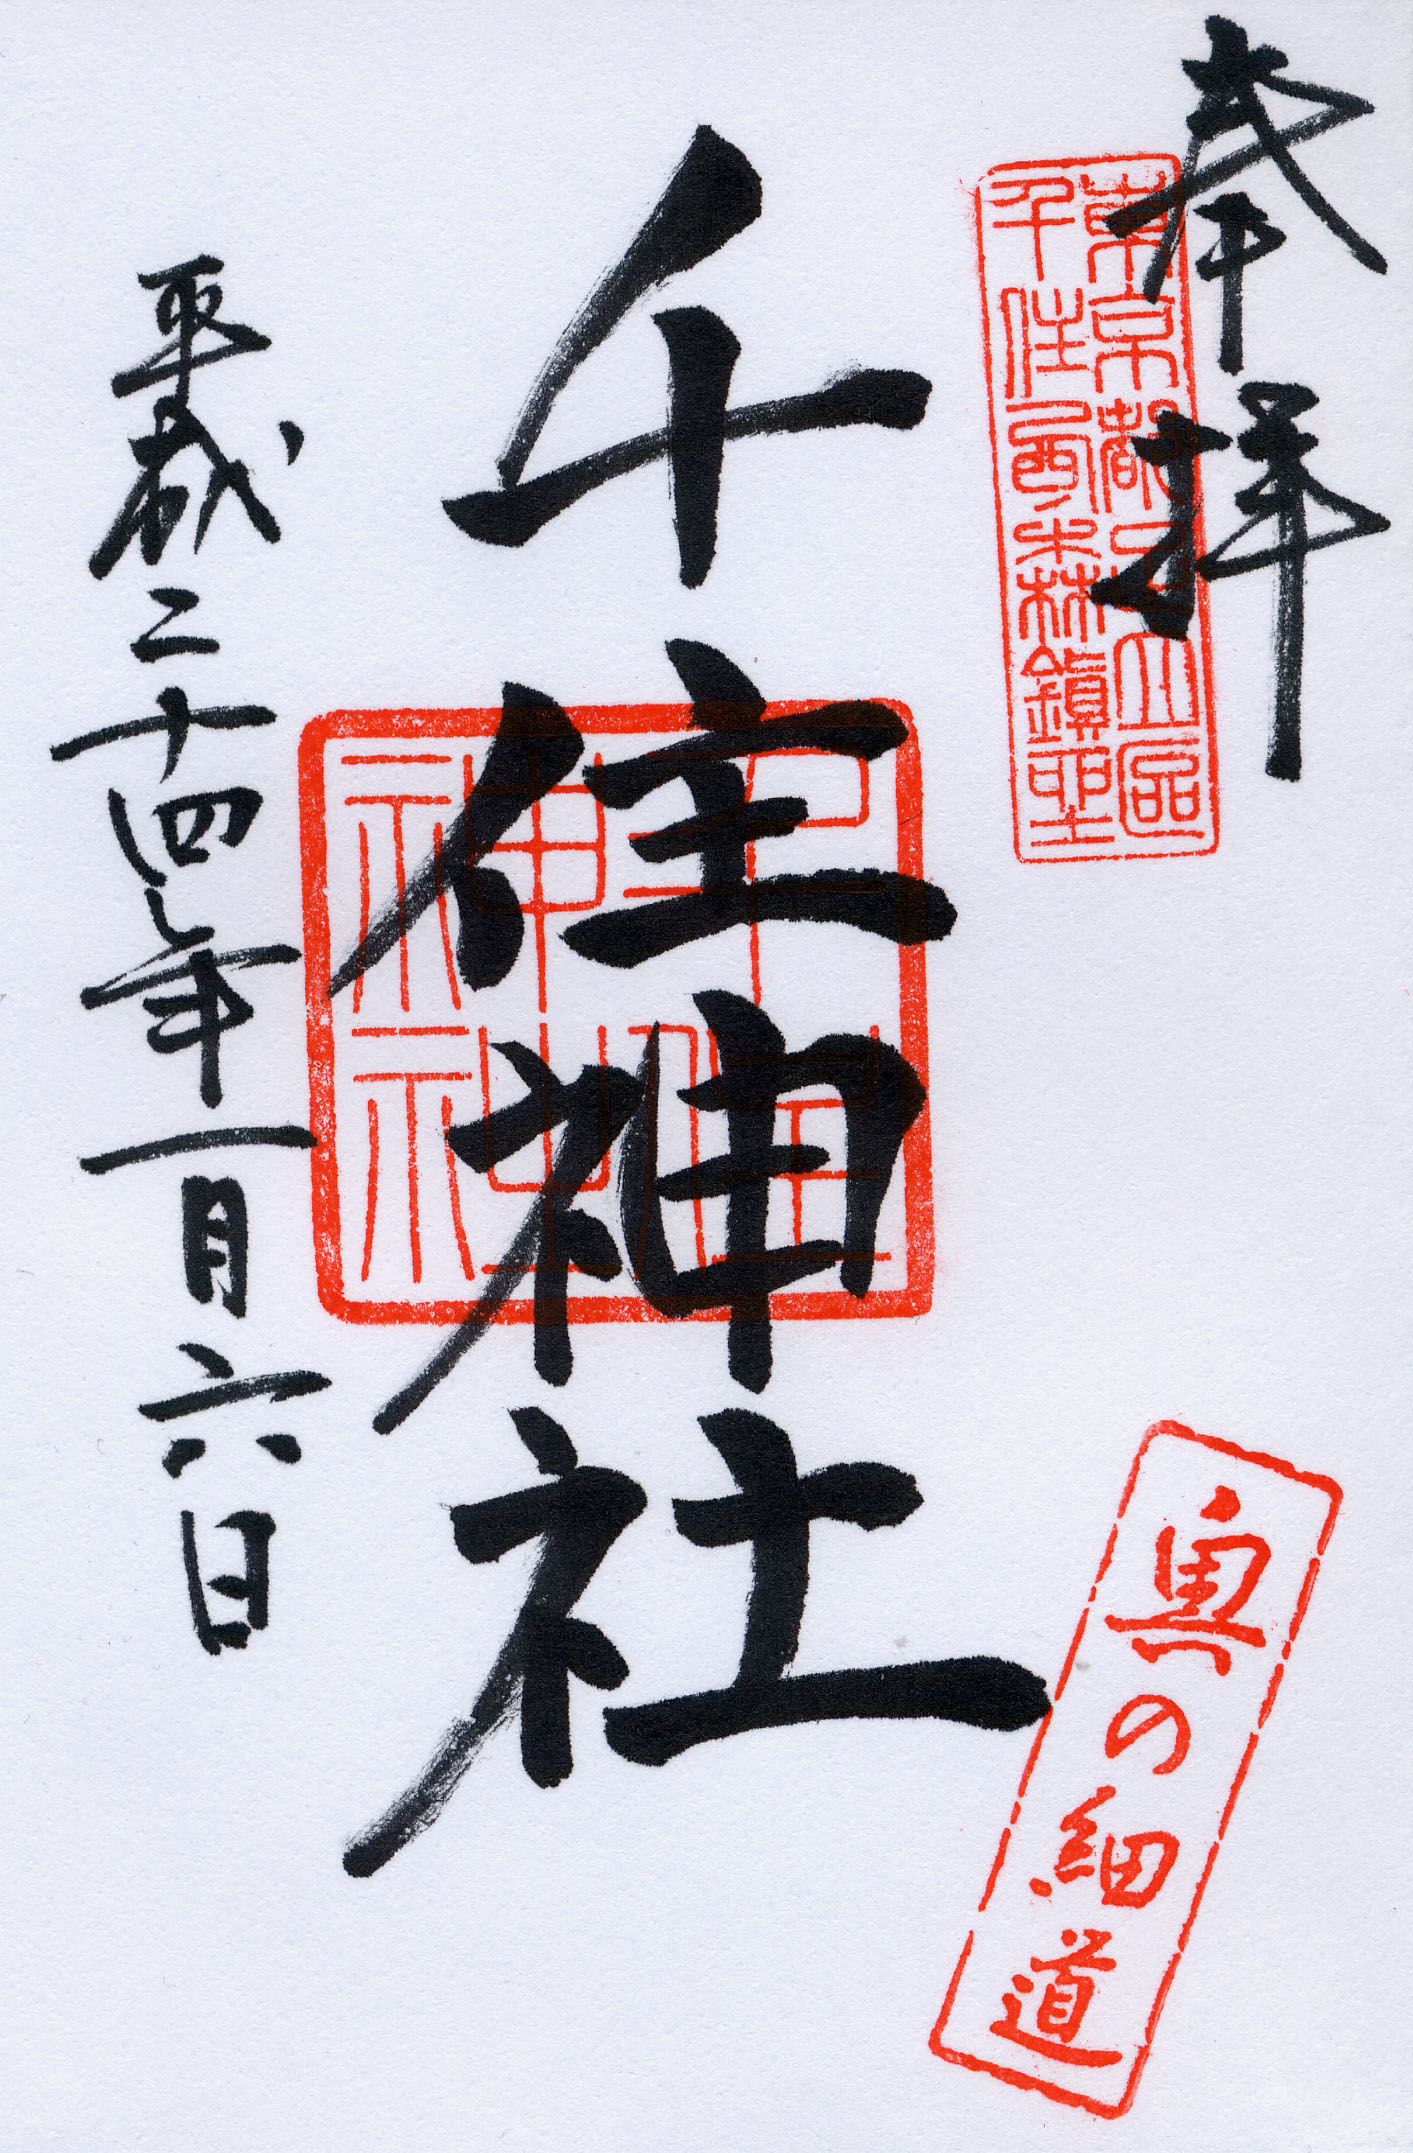 奉拝
東京都足立區
千住西森鎮座
千住神社
千住神社
奥の細道
平成二十四年一月六日